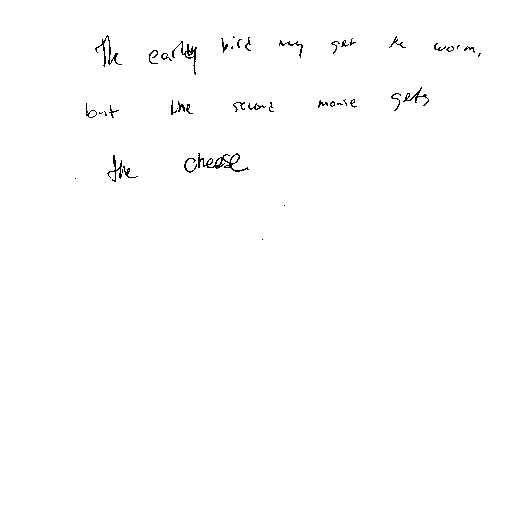 The early bird may get the worm,
but the second mouse gets
the cheese